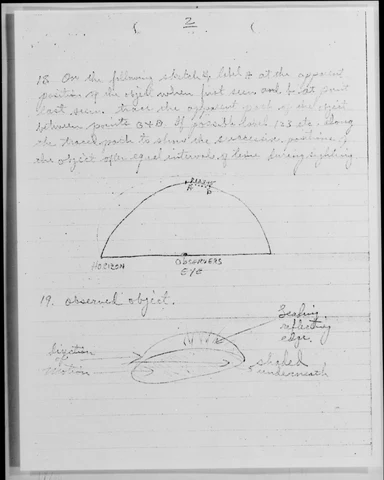 2
18. On the following sketch, label A at the apparent
position of the object when first seen and B at point
last seen. Trace the apparent path of the object
between points A & B. If possible label 123 etc. along
the traced path to show the successive positions of
the object after equal intervals of time during sighting
A B
HORIZON
OBSERVERS
EYE
19. observed object.
Leading
reflecting
edge.
Direction
of
motion
shaded
underneath